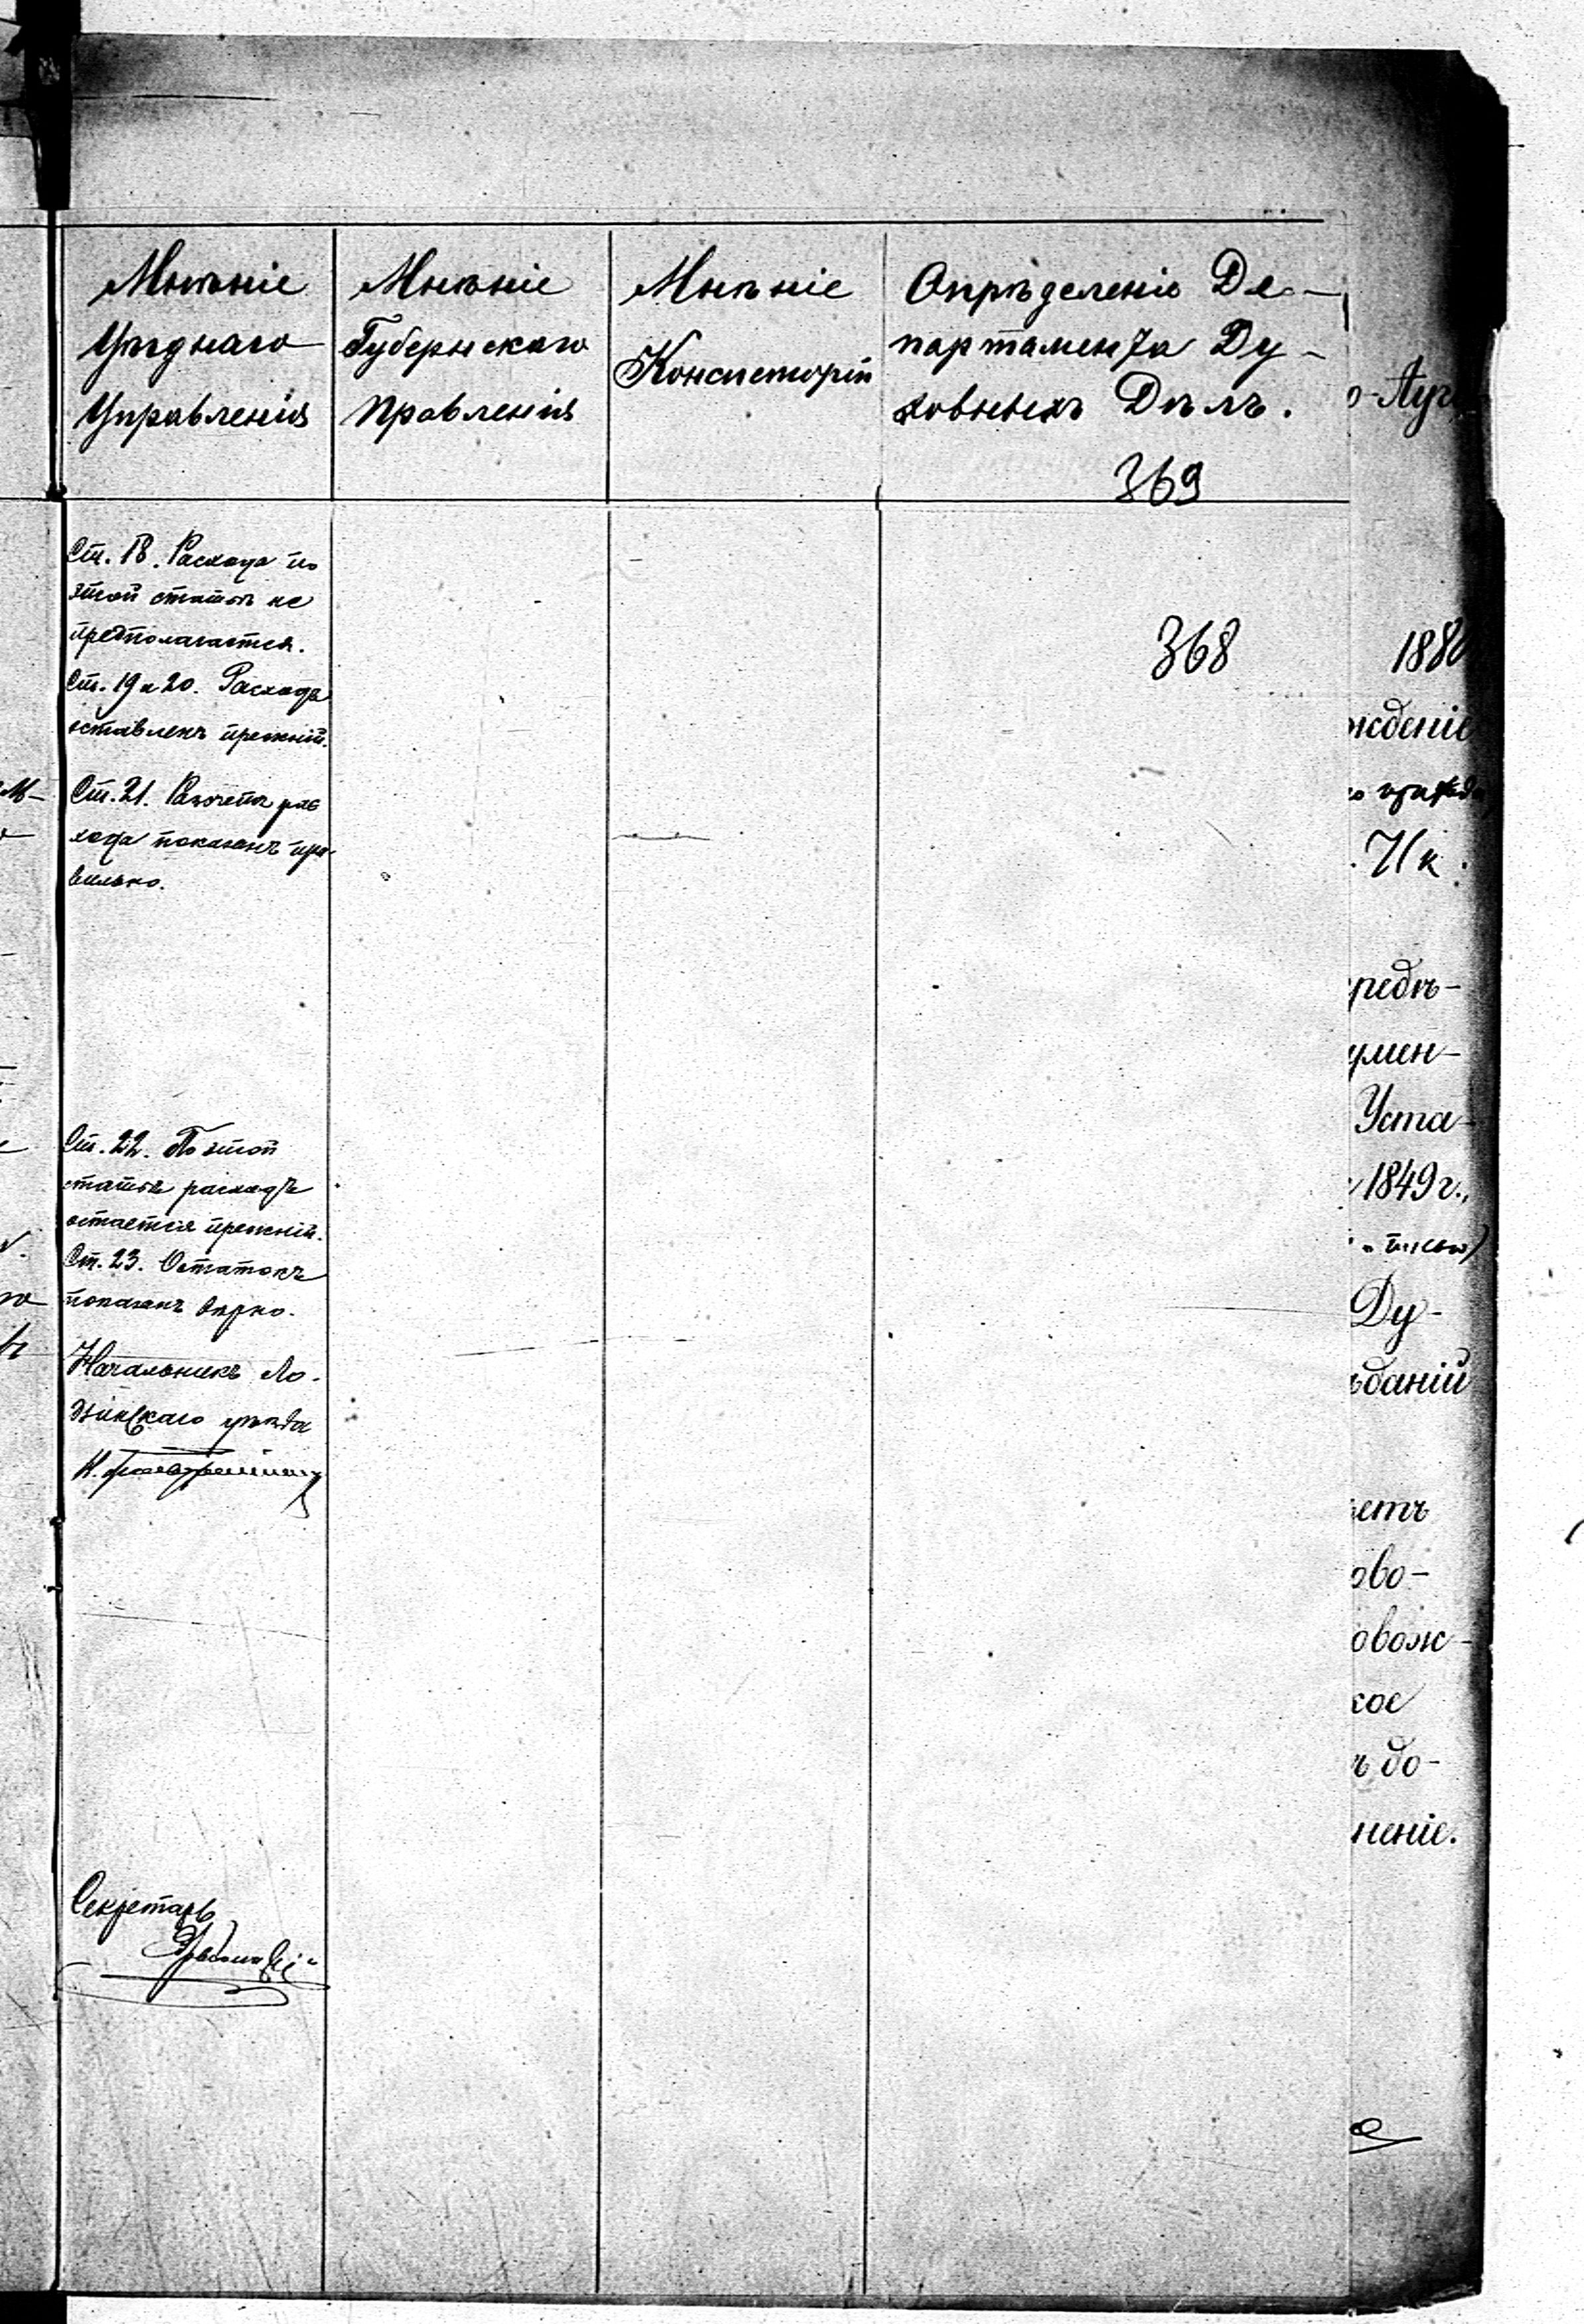 Мнѣніе
Уѣзднаго
Управленія
Мнѣніе
Губернскаго
Правленія
Мнѣніе
Консисторіи
Опредѣленіе Де-
партамента Ду-
ховныхъ Дѣлъ.
369
368
Ст. 18. Расхода по
этой статьѣ не
предполагается.
Ст. 19 и 20. Расходъ
оставленъ прежній.
Ст. 21. Разсчетъ рас
хода показанъ пра-
вильно.
Ст. 22. По этой
статьѣ расходъ
остается прежній.
Ст. 23. Остатокъ
показанъ вѣрно.
Начальникъ Ло-
дзинскаго уѣзда
Секретарь
188
жденіе
7/ к.
редѣ-
умен-
Уста-
1849 г.,
Ду-
ѣданій
етъ
ово-
овож-
кое
ъ до-
неніе.